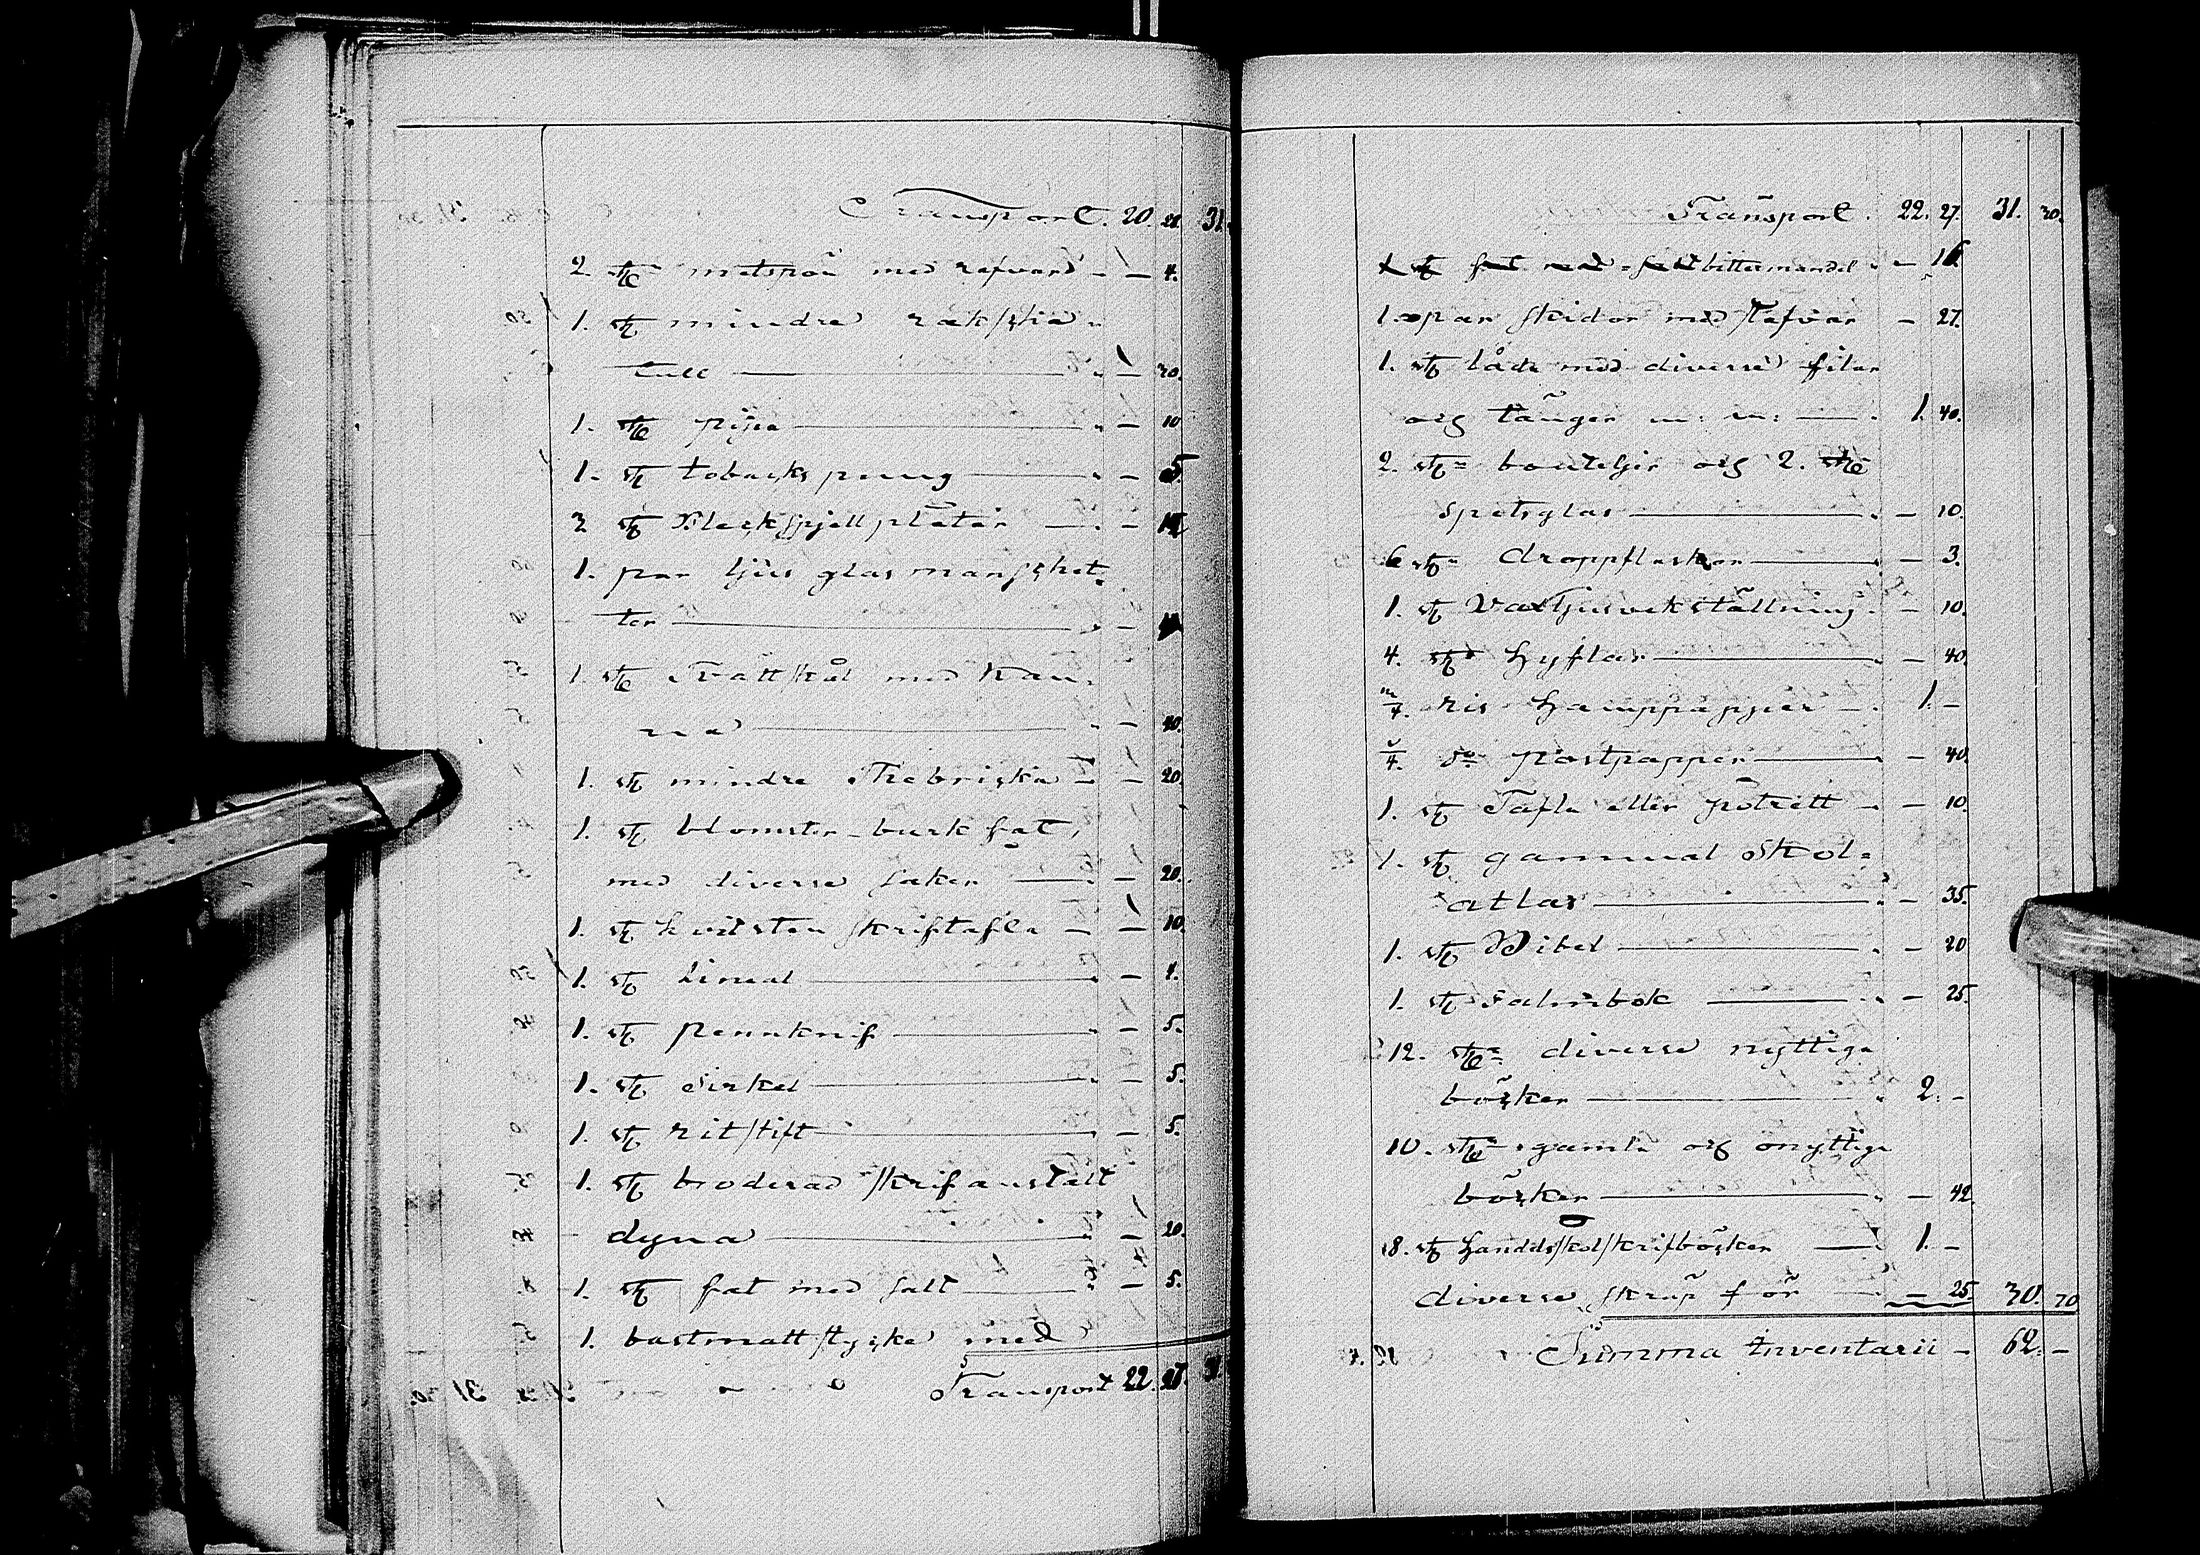 Transport. 20. 28. 31.
2 stc metspöu med refvard — 4.
1. stc mindre räkskia
tull — 20.
1. stc pijpa — 10
1. stc tobacks pung — 5.
2 stc Bleckspjellplåtar — 12
1. par ljus glas mansjhet-
ter —
1. stc Tvättskål med Kan-
na — 40.
1. stc mindre Thebricka — 20.
1. stc blomster-burk fat,
med diverse saker — 20.
1. stc hvitsten skriftafla — 10.
1. stc Lineal — 4.
1. stc pennknif — 5.
1. stc Sirkel — 5.
1. stc ritstift — 5.
1. stc broderad skrifanstalt
dyna — 20.
1. stc fat med salt — 5.
1. bastmattstycke med
Transport 22. 27. 31.
Transport. 22. 27. 31. 30.
bittermandel — 16
1. par skidor med stafvar — 27.
1. stc låda med diverse filar
och tänger m: m: — 1. 40.
2. stc bouteljer och 2. stc
Spetsglas — 10.
6 stc droppflaskor — 3.
1. stc Vaxljusvekställning — 10.
4. stc Hyflar — 40.
ris Hampapper — 1. —
do postpapper — 40.
1. stc Tafla eller potrett — 10.
1. stc gammal Skol=
atlas — 35.
1. stc Bibel — 20
1. stc Salmbok — 25.
12. stc diverse nyttiga
böcker — 2. —
10. stc gamla och onyttiga
böcker — 42
18. stc Handdskolskrifböcker — 1. —
diverse skräp för — 25. 30. 70
Summa Inventarii — 62. —